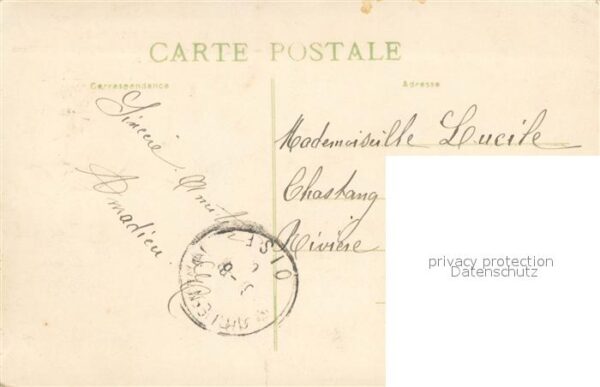 CARTE POSTALE
Correspondance
Adresse
Sincère Amitié
Amadieu
Mademoiselle Lucile
Chastang
Rivière
privacy protection
Datenschutz
OISE